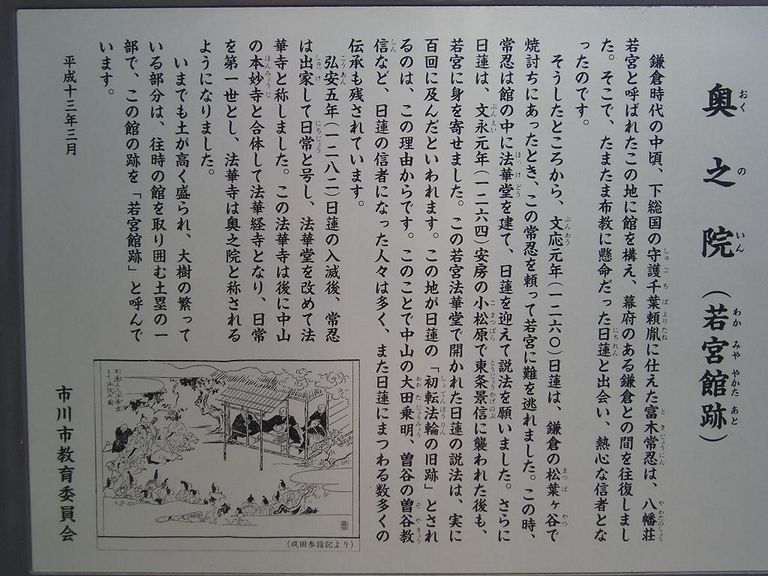 奥之院（若宮館跡）
おくのいん
わかみややかたあと
鎌倉時代の中頃、下総国の守護千葉頼胤に仕えた富木常忍は、八幡荘
若宮と呼ばれたこの地に館を構え、幕府のある鎌倉との間を往復しまし
た。そこで、たまたま布教に懸命だった日蓮と出会い、熱心な信者とな
ったのです。
そうしたところから、文応元年（一二六〇）日蓮は、鎌倉の松葉ヶ谷で
焼討ちにあったとき、この常忍を頼って若宮に難を逃れました。この時、
常忍は館の中に法華堂を建て、日蓮を迎えて説法を願いました。さらに
日蓮は、文永元年（一二六四）安房の小松原で東条景信に襲われた後も、
若宮に身を寄せました。この若宮法華堂で開かれた日蓮の説法は、実に
百回に及んだといわれます。この地が日蓮の「初転法輪の旧跡」とされ
るのは、この理由からです。このことで中山の大田乗明、曽谷の曽谷教
信など、日蓮の信者になった人々は多く、また日蓮にまつわる数多くの
伝承も残されています。
弘安五年（一二八二）日蓮の入滅後、常忍
は出家して日常と号し、法華堂を改めて法
華寺と称しました。この法華寺は後に中山
の本妙寺と合体して法華経寺となり、日常
を第一世とし、法華寺は奥之院と称される
ようになりました。
いまでも土が高く盛られ、大樹の繁って
いる部分は、往時の館を取り囲む土塁の一
部で、この館の跡を「若宮館跡」と呼んで
います。
平成十三年三月
市川市教育委員会
（成田参詣記より）